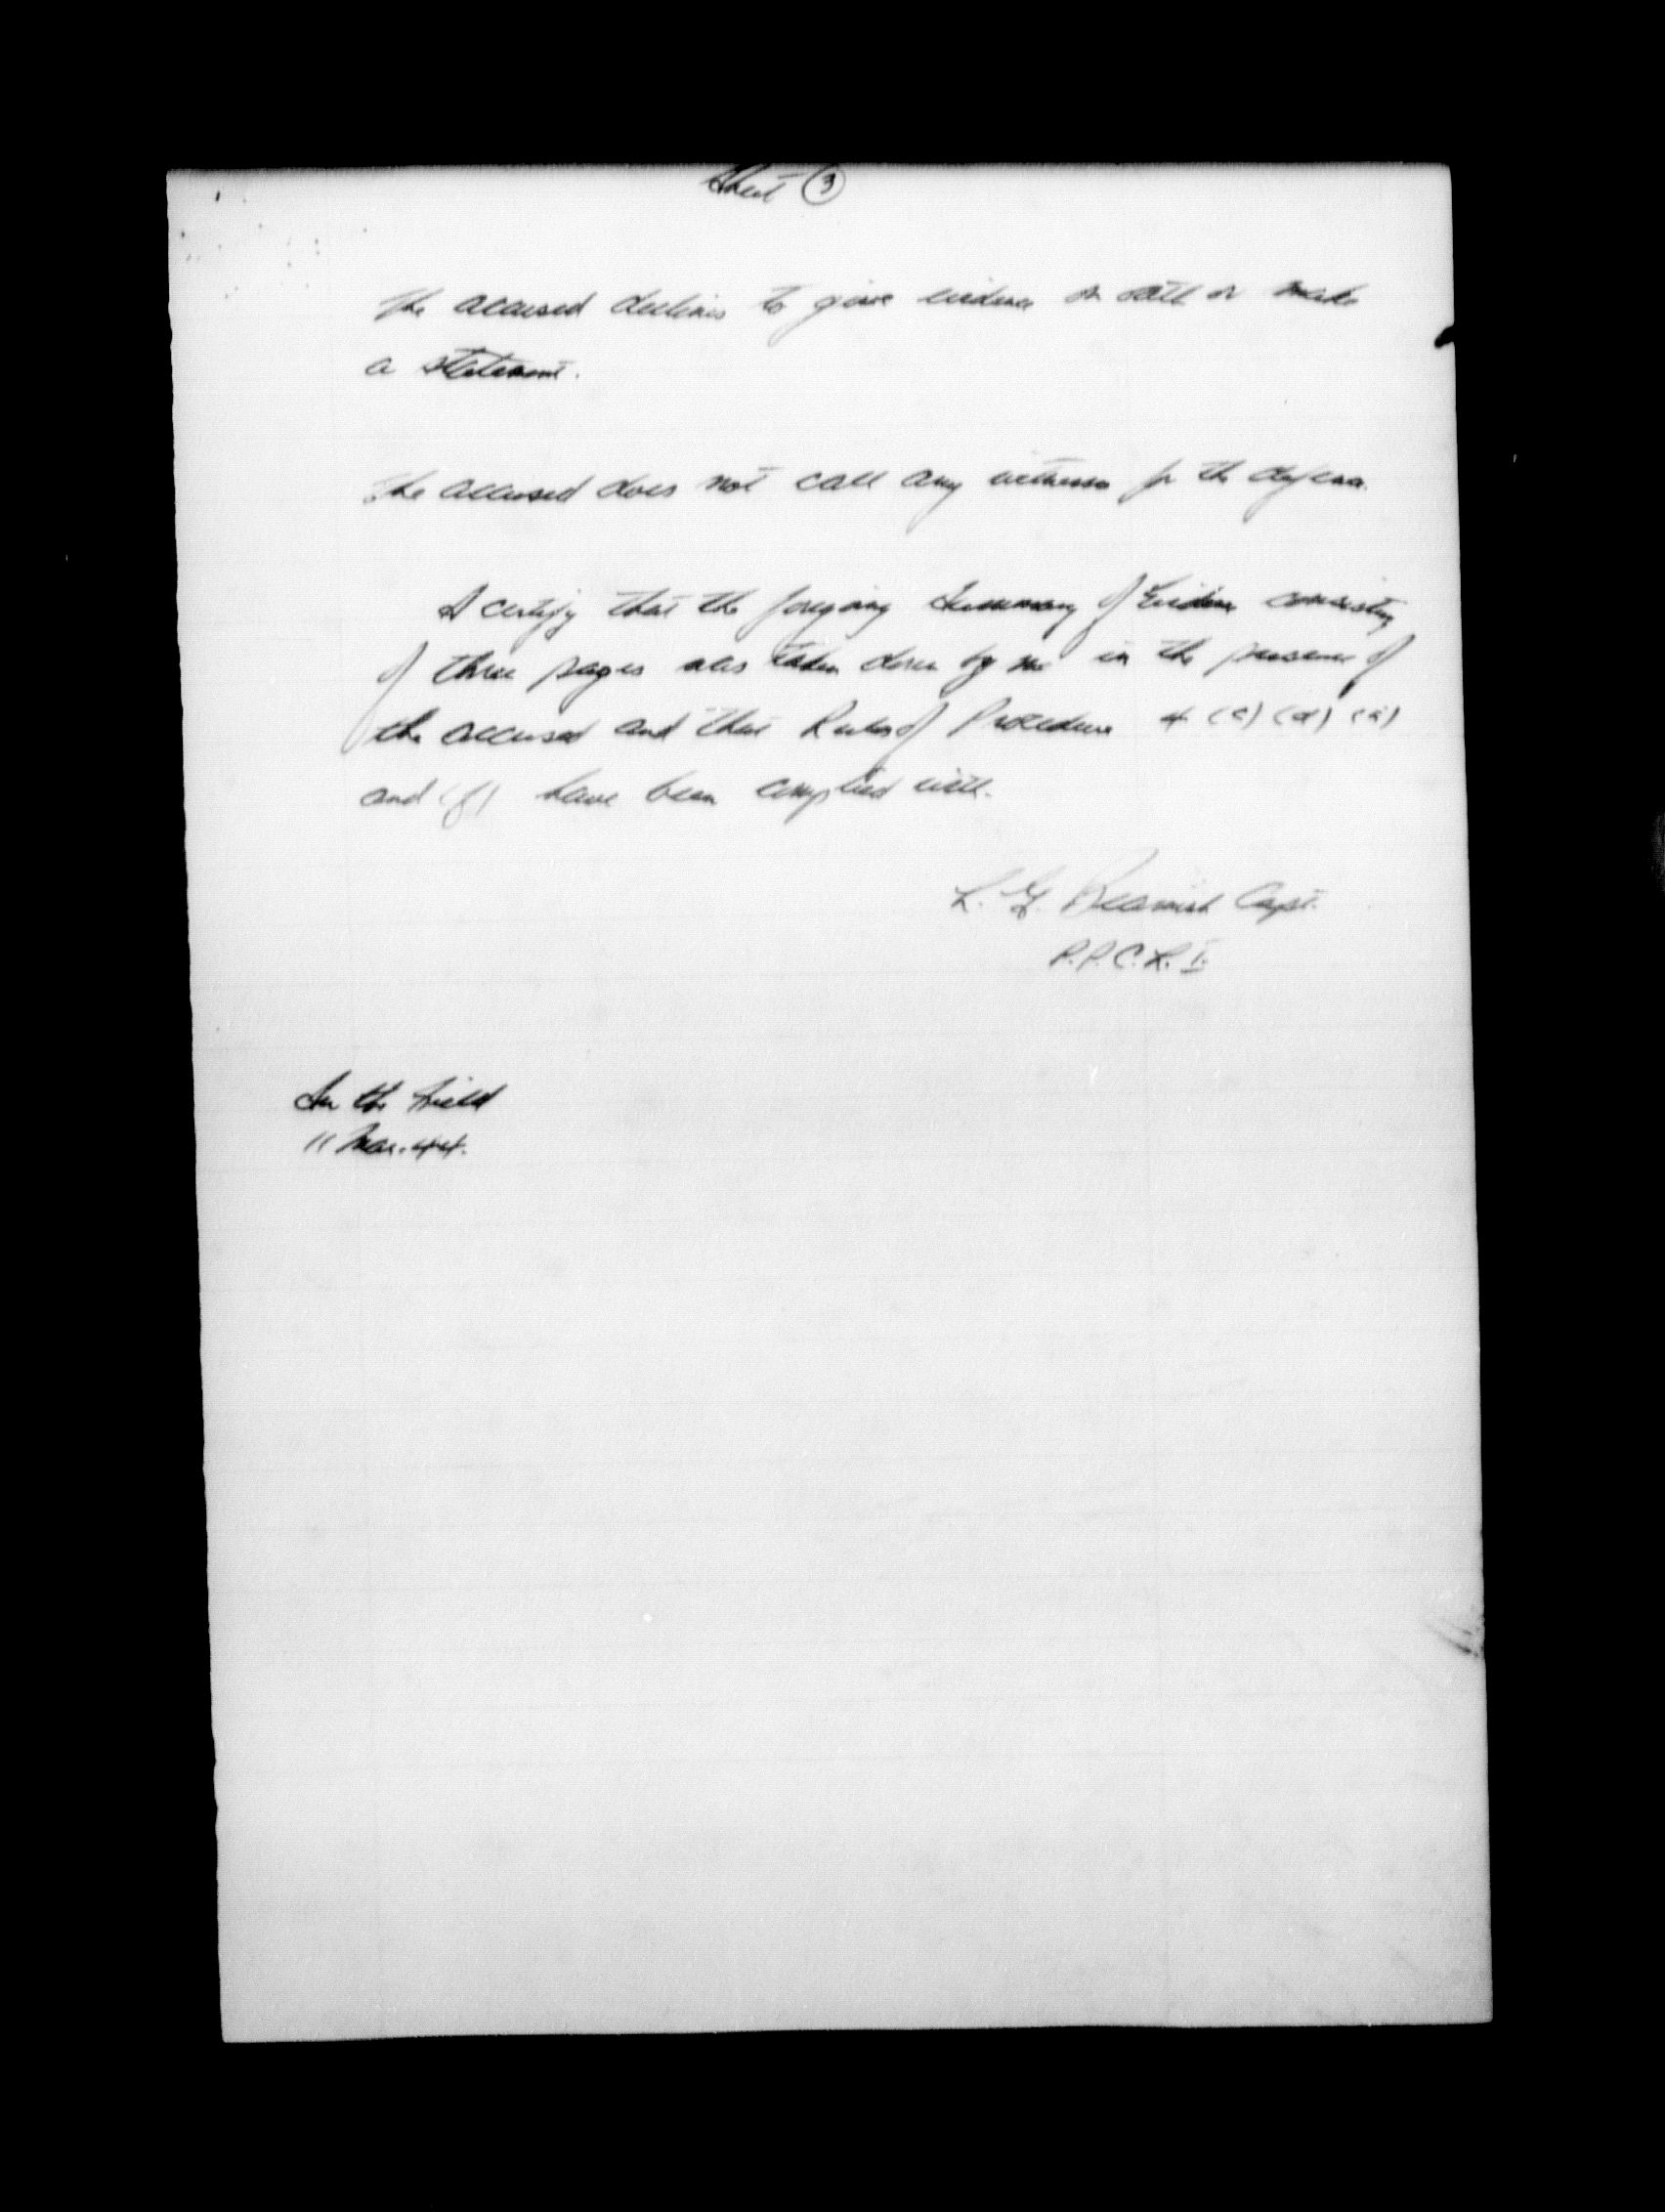 Sheet ③
The accused declines to give evidence on oath or make
a statement.
The accused does not call any witnesses for the defence.
I certify that the foregoing Summary of Evidence consisting
of three pages was taken down by me in the presence of
the accused and that Rules of Procedure 4 (c) (d) (e)
and (f) have been complied with.
L. G. Beamish Capt.
P.P.C.L.I.
In the Field
11 Mar. 44.